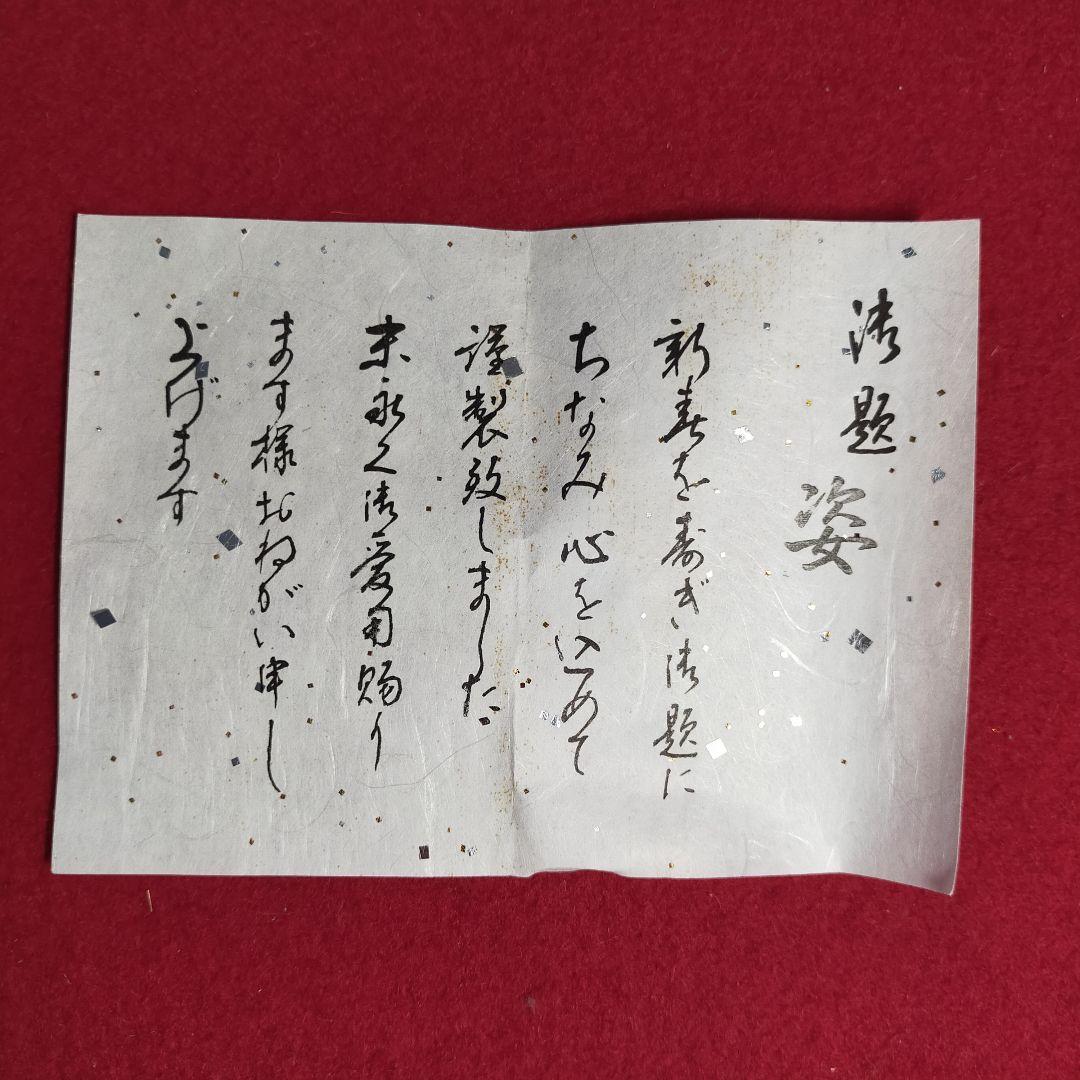 御題
姿
新春を寿ぎ御題に
ちなみ心を込めて
謹製致しました
末永く御愛用賜り
ます様おねがい申し
上げます